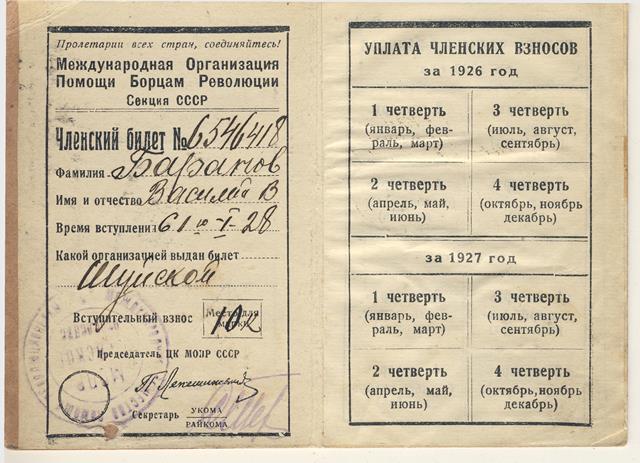 Пролетарии всех стран, соединяйтесь!
Международная Организация
Помощи Борцам Революции
Секция СССР
Членский билет № 6546418
Фамилия Баранов
Имя и отчество Василий В
Время вступления
Какой организацией выдан билет
Шуйской
Вступительный взнос Место для марки 10к
Председатель ЦК МОПР СССР
Секретарь УКОМА
РАЙКОМА
УПЛАТА ЧЛЕНСКИХ ВЗНОСОВ
за 1926 год
1 четверть
(январь, фев-
раль, март)
3 четверть
(июль, август,
сентябрь)
2 четверть
(апрель, май,
июнь)
4 четверть
(октябрь, ноябрь
декабрь)
за 1927 год
1 четверть
(январь, фев-
раль, март)
3 четверть
(июль, август,
сентябрь)
2 четверть
(апрель, май,
июнь)
4 четверть
(октябрь, ноябрь
декабрь)